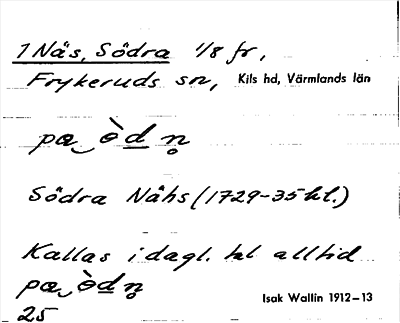 1 Näs, Södra 1/8 fr,
Frykeruds sn, Kils hd, Värmlands län
pα‿ òd n̥
Södra Nähs (1729-35 kl.)
Kallas i dagl. tal alltid
pα‿òd n̥
Isak Wallin 1912–13
25